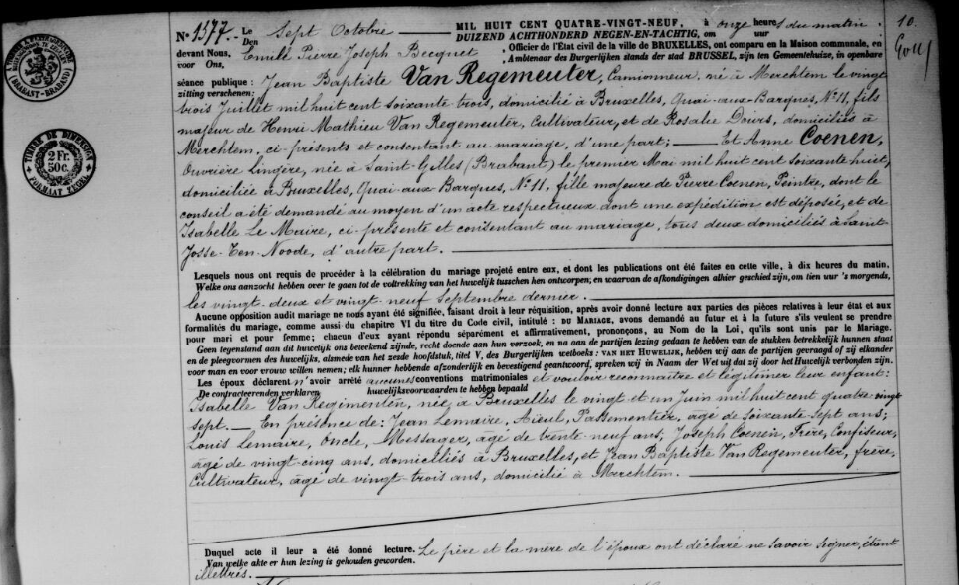 Nº 1577. Le Sept Octobre MIL HUIT CENT QUATRE-VINGT-NEUF, à onze heures du matin. 10.
Den DUIZEND ACHTHONDERD NEGEN-EN-TACHTIG, om uur
devant Nous, Emile Pierre Joseph Becquet, Officier de l'État civil de la ville de BRUXELLES, ont comparu en la Maison communale, en
voor Ons, Ambtenaar des Burgerlijken stands der stad BRUSSEL, zijn ten Gemeentehuize, in openbare
séance publique : Jean Baptiste Van Regemeuter, Camionneur, né à Merchtem le vingt
zitting verschenen:
trois Juillet mil huit cent soixante trois, domicilié à Bruxelles, Quai-aux-Barques, Nº 11, fils
majeur de Henri Mathieu Van Regemeuter, Cultivateur, et de Rosalie Dours, domiciliés à
Merchtem, ci-présents et consentant au mariage, d'une part; — Et Anne Coenen,
Ouvrière Lingère, née à Saint-Gilles (Brabant) le premier Mai mil huit cent soixante huit,
domiciliée à Bruxelles, Quai-aux-Barques, Nº 11, fille majeure de Pierre Coenen, Peintre, dont le
conseil a été demandé au moyen d'un acte respectueux dont une expédition est déposée, et de
Isabelle Le Maire, ci-présente et consentant au mariage, tous deux domiciliés à Saint-
Josse-Ten-Noode, d'autre part.
Lesquels nous ont requis de procéder à la célébration du mariage projeté entre eux, et dont les publications ont été faites en cette ville, à dix heures du matin.
Welke ons aanzocht hebben over te gaan tot de voltrekking van het huwelijk tusschen hen ontworpen; en waarvan de afkondigingen alhier geschied zijn, om tien uur 's morgends,
les vingt-deux et vingt-neuf Septembre dernier.
Aucune opposition audit mariage ne nous ayant été signifiée, faisant droit à leur réquisition, après avoir donné lecture aux parties des pièces relatives à leur état et aux
formalités du mariage, comme aussi du chapitre VI du titre du Code civil, intitulé : DU MARIAGE, avons demandé au futur et à la future s'ils veulent se prendre
pour mari et pour femme; chacun d'eux ayant répondu séparément et affirmativement, prononçons, au Nom de la Loi, qu'ils sont unis par le Mariage.
Geen tegenstand aan dit huwelijk ons beteekend zijnde, recht doende aan hun verzoek, en na aan de partijen lezing gedaan te hebben van de stukken betrekkelijk hunnen staat
en de pleegvormen des huwelijks, alsmede van het zesde hoofdstuk, titel V, des Burgerlijken wetboeks: VAN HET HUWELIJK, hebben wij aan de partijen gevraagd of zij elkander
voor man en voor vrouw willen nemen; elk hunner hebbende afzonderlijk en bevestigend geantwoord, spreken wij in Naam der Wet uit dat zij door het Huwelijk verbonden zijn.
Les époux déclarent n'avoir arrêté aucunes conventions matrimoniales et vouloir reconnaître et légitimer leur enfant:
De contracteerenden verklaren huwelijksvoorwaarden te hebben bepaald
Isabelle Van Regimenten, née à Bruxelles le vingt et un Juin mil huit cent quatre-vingt
sept. — En présence de: Jean Lemaire, Aïeul, Passementier, âgé de soixante-sept ans;
Louis Lemaire, Oncle, Messager, âgé de trente-neuf ans, Joseph Coenen, Frère, Confiseur,
âgé de vingt-cinq ans, domiciliés à Bruxelles, et Jean Baptiste Van Regemeuter, frère,
Cultivateur, âgé de vingt-trois ans, domicilié à Merchtem.
Duquel acte il leur a été donné lecture. Le père et la mère de l'époux ont déclaré ne savoir signer, étant
Van welke akte er hun lezing is gehouden geworden.
illettrés.
TIMBRE DE DIMENSION
2 Fr.
50 c.